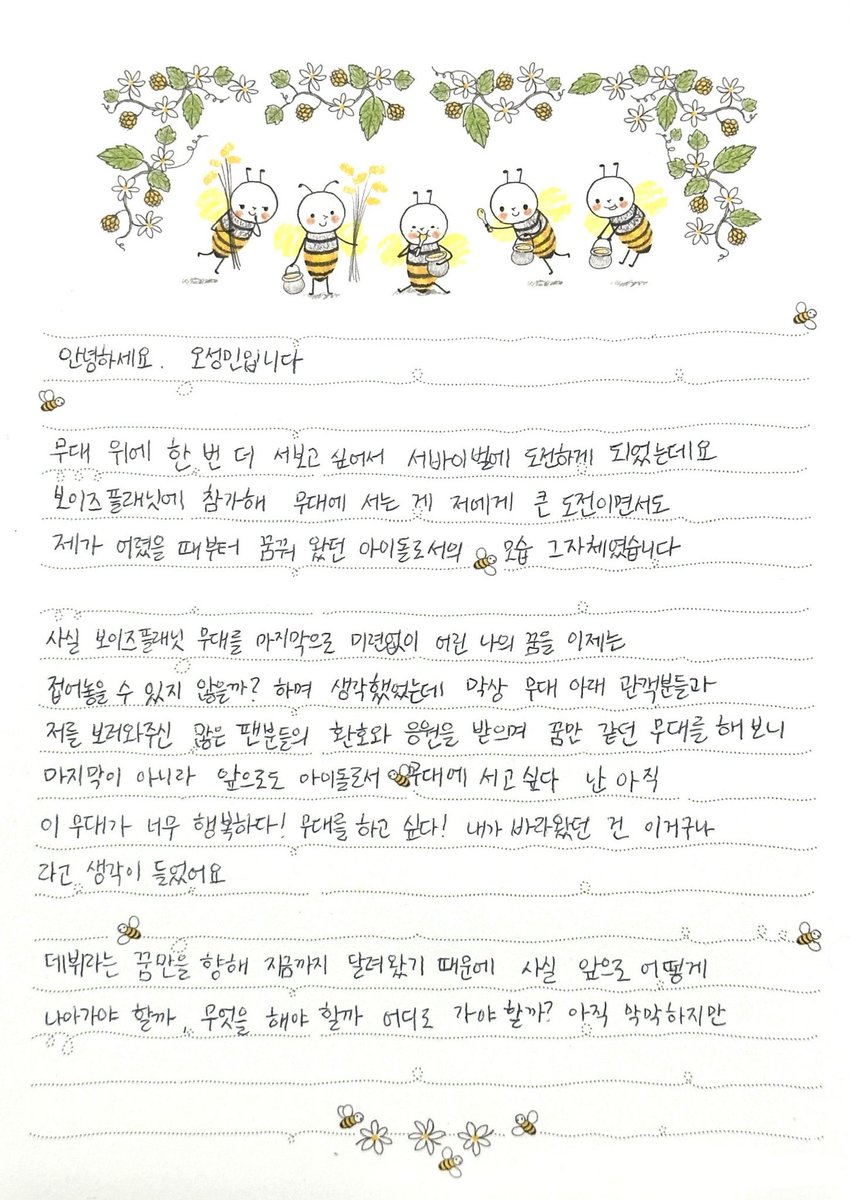 안녕하세요. 오성민입니다
무대 위에 한 번 더 서보고 싶어서 서바이벌에 도전하게 되었는데요
보이즈플래닛에 참가해 무대에 서는 게 저에게 큰 도전이면서도
제가 어렸을 때부터 꿈꿔 왔던 아이돌로서의 모습 그자체였습니다
사실 보이즈플래닛 무대를 마지막으로 미련없이 어린 나의 꿈을 이제는
접어놓을 수 있지 않을까? 하며 생각했었는데 막상 무대 아래 관객분들과
저를 보러와주신 많은 팬분들의 환호와 응원을 받으며 꿈만 같던 무대를 해보니
마지막이 아니라 앞으로도 아이돌로서 무대에 서고싶다 난 아직
이 무대가 너무 행복하다! 무대를 하고 싶다! 내가 바라왔던 건 이거구나
라고 생각이 들었어요
데뷔라는 꿈만을 향해 지금까지 달려왔기 때문에 사실 앞으로 어떻게
나아가야 할까, 무엇을 해야 할까 어디로 가야할까? 아직 막막하지만